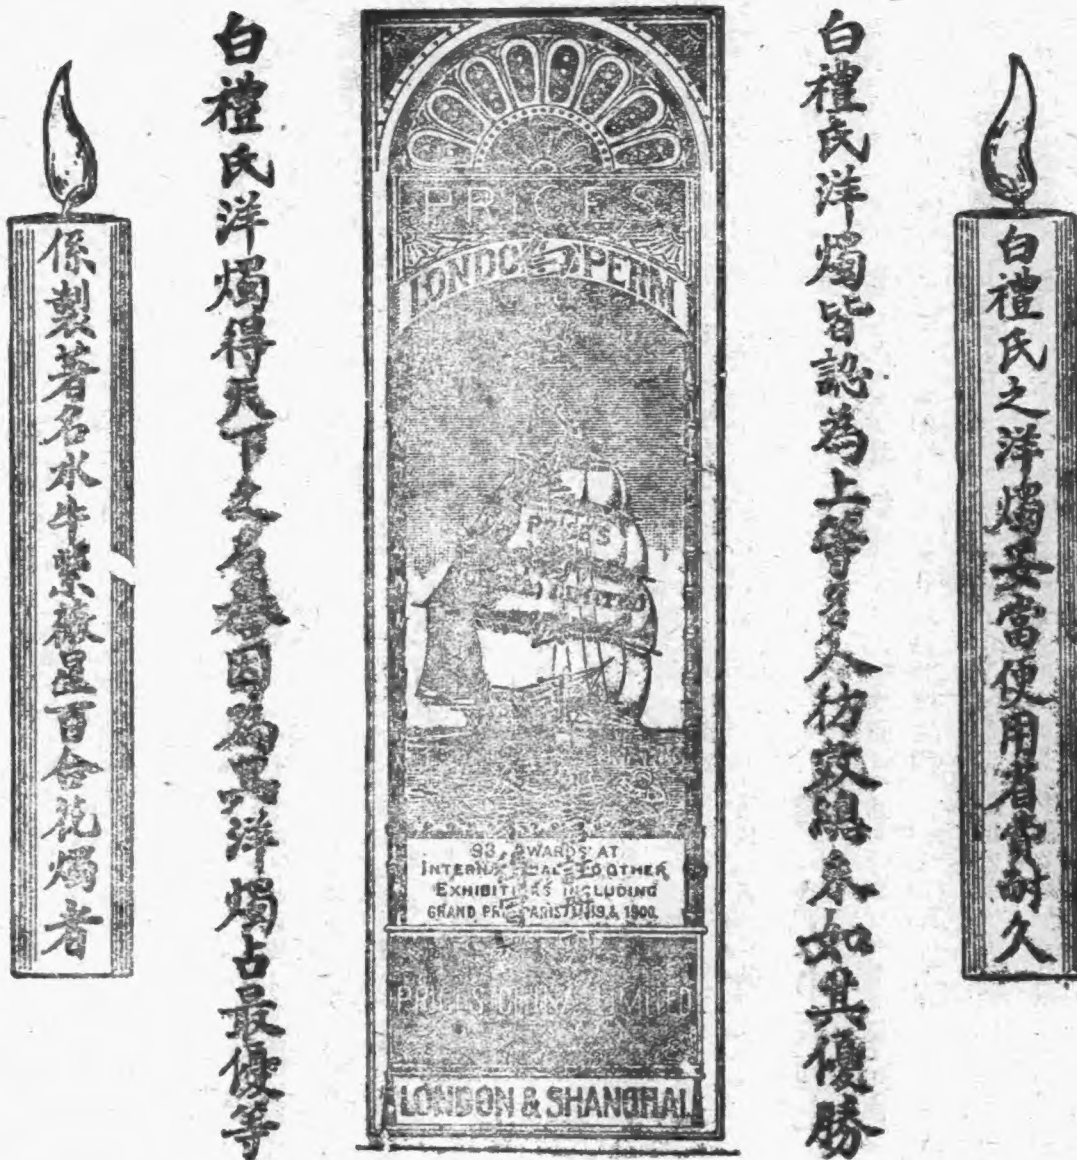 白禮氏之洋燭妥當便用省費耐久
白禮氏洋燭皆認為上等多人彷效總未如其優勝
PRICE'S
LONDON SPERM
PRICE'S
LIMITED
93 AWARDS AT
INTERNATIONAL & OTHER
EXHIBITIONS INCLUDING
GRAND PRIX PARIS 1889 & 1900.
PRICE'S CHINA LIMITED
LONDON & SHANGHAI
白禮氏洋燭得天下之名譽因為其洋燭占最優等
係製著名水牛紫薇星百合花燭者